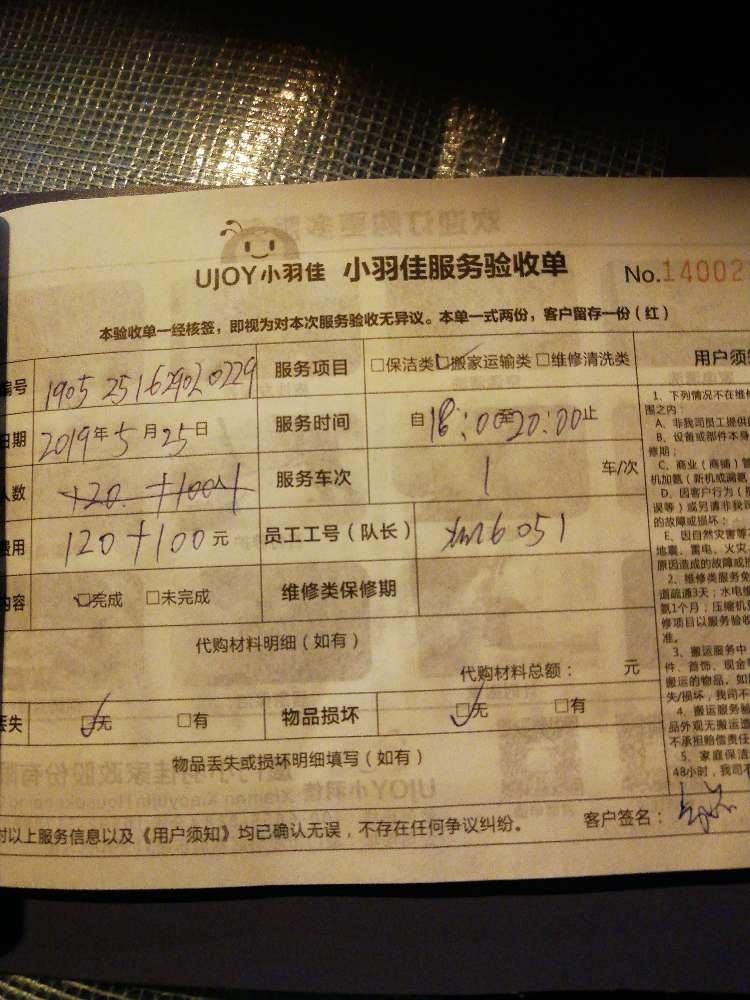 UJOY小羽佳 小羽佳服务验收单 No.14002
本验收单一经核签，即视为对本次服务验收无异议。本单一式两份，客户留存一份（红）
编号 1905251629020229 服务项目 □保洁类 ☑搬家运输类 □维修清洗类
日期 2019年5月25日 服务时间 自18:00至20:00止
人数 服务车次 1 车/次
费用 120+100元 员工工号（队长） 6051
内容 ☑完成 □未完成 维修类保修期
代购材料明细（如有）
代购材料总额： 元
丢失 ☑无 □有 物品损坏 ☑无 □有
物品丢失或损坏明细填写（如有）
对以上服务信息以及《用户须知》均已确认无误，不存在任何争议纠纷。 客户签名：
用户须知
1、下列情况不在维修
围之内：
A、非我司员工提供的
B、设备或部件本身
修期；
C、商业（商铺）管
机加氨（新机或漏氨
D、因客户行为（
误等）或另请非我司
的故障或损坏；
E、因自然灾害等
地震、雷电、火灾、
原因造成的故障或损
2、维修类服务免
道疏通3天；水电维
氨1个月；压缩机
修项目以服务验收
准。
3、搬运服务中
件、首饰、现金
搬运的物品，如
失/损坏，我司不
4、搬运服务
品外观无搬运造
不承担赔偿责任
5、家庭保洁
48小时，我司不